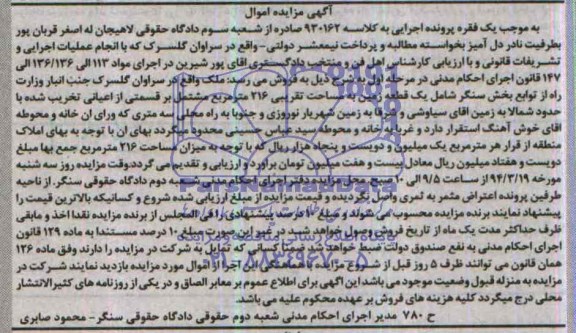 آگهی مزایده اموال
به موجب یک فقره پرونده اجرایی به کلاسه ۹۳۰۱۶۲ صادره از شعبه سوم دادگاه حقوقی لاهیجان له اصغر قربان پور
بطرفیت نادر دل آمیز بخواسته مطالبه و پرداخت نیمعشر دولتی- واقع در سراوان گلسرک که با انجام عملیات اجرایی و
تشریفات قانونی و با ارزیابی کارشناس اهل فن و منتخب دادگستری اقای پور شیرین در اجرای مواد ۱۱۳ الی ۱۳۶/۱۳۶ الی
۱۴۷ قانون اجرای احکام مدنی در مرحله اول به شرح ذیل به فروش می رسد: ملک واقع در سراوان گلسرک جنب انبار وزارت
راه از توابع بخش سنگر شامل یک قطعه زمین به مساحت تقریبی ۲۱۶ مترمربع مشتمل بر قسمتی از اعیانی تخریب شده با
حدود شمالا به زمین اقای سیاوشی و شرقا به زمین شهریار نوروزی و جنوبا به راه محلی سه متری که ورای ان خانه و محوطه
اقای خوش آهنگ استقرار دارد و غربا به خانه و محوطه سید عباس حسینی محدود میگردد بهای ان با توجه به بهای املاک
منطقه از قرار هر مترمربع یک میلیون و دویست و پنجاه هزار ریال که با توجه به میزان مساحت ۲۱۶ مترمربع جمع بها مبلغ
دویست و هفتاد میلیون ریال معادل بیست و هفت میلیون تومان براورد و ارزیابی و تقدیم می گردد. وقت مزایده روز سه شنبه
مورخه ۹۴/۳/۱۹ از ساعت ۹/۵ الی ۱۰ صبح محل مزایده دفتر اجرای احکام مدنی شعبه دوم دادگاه حقوقی سنگر. از ناحیه
طرفین پرونده اعتراض مثمر به ثمری واصل نگردیده و قیمت مزایده از مبلغ ارزیابی شده شروع و کسانیکه بالاترین قیمت را
پیشنهاد نمایند برنده مزایده محسوب می شوند و مبلغ ۱۰ درصد پیشنهادی فی المجلس از برنده مزایده نقدا اخذ و مابقی
ظرف حداکثر مدت یک ماه از تاریخ فروش وصول خواهد شد در غیر این صورت مبلغ ۱۰ درصد مستندا به ماده ۱۲۹ قانون
اجرای احکام مدنی به نفع صندوق دولت ضبط خواهد شد. ضمنا کسانی که تمایل به شرکت در مزایده را دارند وفق ماده ۱۲۶
همان قانون می توانند ظرف ۵ روز قبل از شروع مزایده با هماهنگی این اجرا از اموال مورد مزایده بازدید نمایند شرکت در
مزایده به منزله قبول وضعیت موجود می باشد این آگهی برای اطلاع عموم بر معابر الصاق و در یکی از روزنامه های کثیرالانتشار
محلی درج میگردد کلیه هزینه های فروش بر عهده محکوم علیه می باشد.
ح ۷۸۰ مدیر اجرای احکام مدنی شعبه دوم حقوقی دادگاه حقوقی سنگر- محمود صابری
ParsNamadData
۰۲۱-۸۸۳۴۹۶۷۰-۵